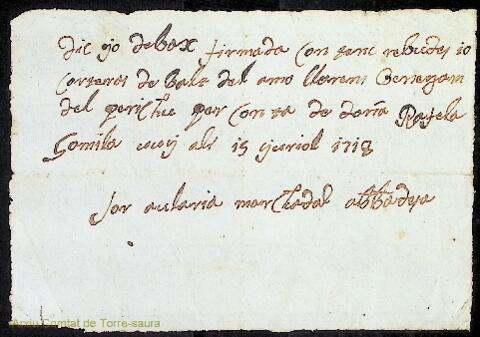 dic yo debax firmada con tenc rebudes 10
corteras de blat del amo llorens benejam
del perichec per conta de doña Rafela
Gomila vuoy als 15 juriol 1718
Sor aularia marcadal abbadesa
Arxiu Comtat de Torre-saura